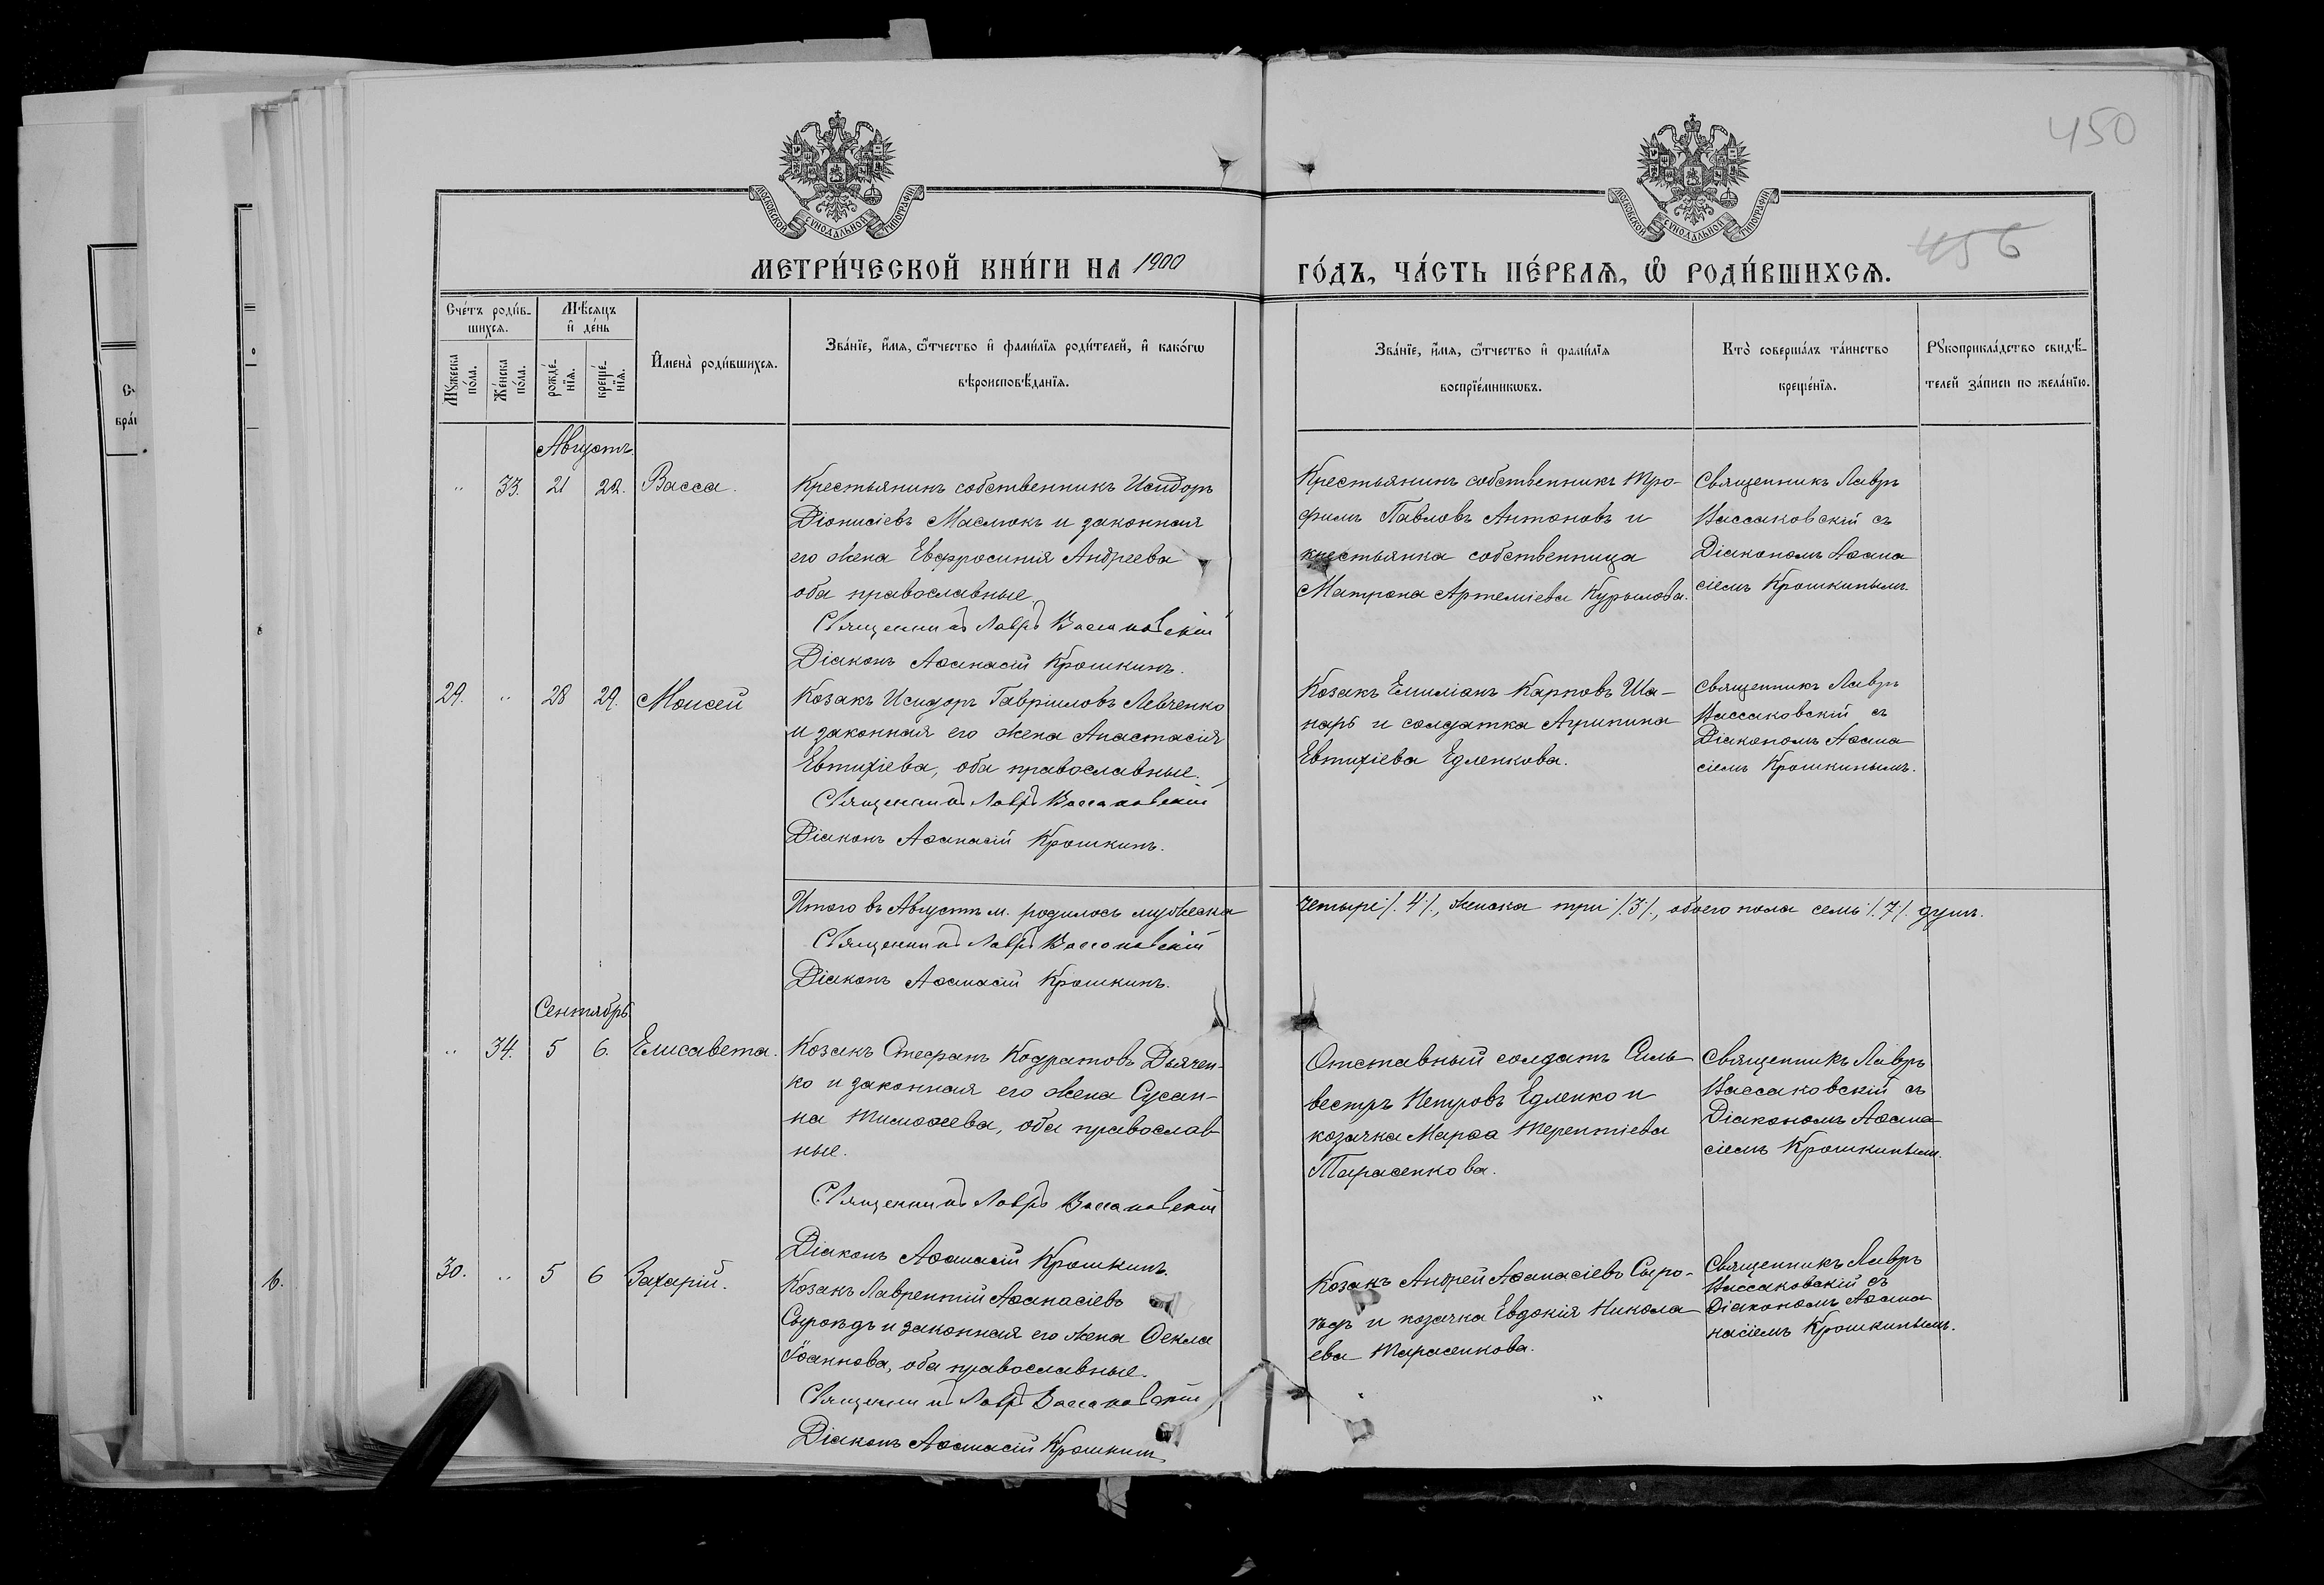 450
456
МОСКОВСКОЙ СУНОДАЛЬНОЙ ТИПОГРАФІИ
МОСКОВСКОЙ СУНОДАЛЬНОЙ ТИПОГРАФІИ
МЕТРИ́ЧЕСКОЙ КНИ́ГИ НА 1900
ГО́ДЪ, ЧА́СТЬ ПЕ́РВАѦ, Ѡ҆ РОДИ́ВШИХСѦ.
Сче́тъ роди́в-
шихсѧ.
Мꙋ́жеска по́ла.
Же́нска по́ла.
Мѣ́сѧцъ
и҆ де́нь
рожде́-
нїѧ.
креще́-
нїѧ.
И҆мена̀ роди́вшихсѧ.
Зва́нїе, и҆́мѧ, ѻ҆́тчество и҆ фамѝлїѧ роди́телей, и҆ како́гѡ
вѣроисповѣ́данїѧ.
Зва́нїе, и҆́мѧ, ѻ҆́тчество и҆ фамѝлїѧ
воспрїе́мникѡвъ.
Кто̀ соверша́лъ та́инство
креще́нїѧ.
Рꙋкоприкла́дство свидѣ́-
телей за́писи по жела́нїю.
Августъ.
" 33. 21 22. Васса.
Крестьянинъ собственникъ Исидоръ
Діонисіевъ Маслюкъ и законная
его жена Евфросинія Андреева
оба православные.
Священникъ Лавръ Вассаковскій
Діаконъ Аѳанасій Крошкинъ.
Крестьянинъ собственникъ Тро-
фимъ Павловъ Антоновъ и
крестьянка собственница
Матрона Артеміева Курылова.
Священникъ Лавръ
Вассаковскій съ
Діакономъ Аѳана
сіемъ Крошкинымъ.
29. " 28 29. Моисей
Козакъ Исидоръ Гавріиловъ Левченко
и законная его жена Анастасія
Евтихіева, оба православные.
Священникъ Лавръ Вассаковскій
Діаконъ Аѳанасій Крошкинъ.
Козакъ Емиліанъ Карповъ Ша-
нарь и солдатка Агрипина
Евтихіева Едленкова.
Священникъ Лавръ
Вассаковскій съ
Діакономъ Аѳана
сіемъ Крошкинымъ.
Итого въ Августѣ м. родилось мужеска
четыре /.4/., женска три /.3/., обоего пола семь /.7/. душъ.
Священникъ Лавръ Вассаковскій
Діаконъ Аѳанасій Крошкинъ.
Сентябрь
" 34. 5 6. Елисавета.
Козакъ Стефанъ Кодратовъ Дьячен-
ко и законная его жена Сусан-
на Тимоѳеева, оба православ-
ные.
Священникъ Лавръ Вассаковскій
Діаконъ Аѳанасій Крошкинъ.
Отставный солдатъ Силь-
вестръ Петровъ Едленко и
козачка Марѳа Терентіева
Тарасенкова.
Священникъ Лавръ
Вассаковскій съ
Діакономъ Аѳана
сіемъ Крошкинымъ.
30. " 5 6 Захарій.
Козакъ Лаврентій Аѳанасіевъ
Сыроѣдъ и законная его жена Ѳекла
Іоаннова, оба православные.
Священникъ Лавръ Вассаковскій
Діаконъ Аѳанасій Крошкинъ
Козакъ Андрей Аѳанасіевъ Сыро-
ѣдъ и козачка Евдокія Никола
ева Тарасенкова.
Священникъ Лавръ
Вассаковскій съ
Діакономъ Аѳана
насіемъ Крошкинымъ.